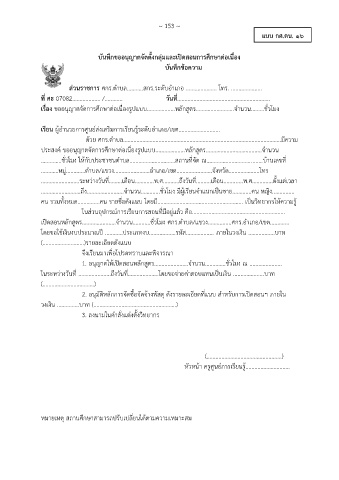 – 153 –
แบบ กศ.ตน. ๑๖
บันทึกขออนุญาตจัดตั้งกลุ่มและเปิดสอนการศึกษาต่อเนื่อง
บันทึกข้อความ
ส่วนราชการ ศกร.ตำบล..........สกร.ระดับอำเภอ .................... โทร. ....................
ที่ ศธ 07082.................. /............. วันที่............................................................
เรื่อง ขออนุญาตจัดการศึกษาต่อเนื่องรูปแบบ..................หลักสูตร........................จำนวน.........ชั่วโมง
เรียน ผู้อำนวยการศูนย์ส่งเสริมการเรียนรู้ระดับอำเภอ/เขต...........................
ด้วย ศกร.ตำบล......................................................................................................มีความ
ประสงค์ ขออนุญาตจัดการศึกษาต่อเนื่องรูปแบบ...................หลักสูตร....................................จำนวน
.............ชั่วโมง ให้กับประชาชนตำบล.............................สถานที่จัด ณ....................................บ้านเลขที่
...........หมู่............ตำบล/แขวง......................อำเภอ/เขต.......................จังหวัด...................โทร
.........................ระหว่างวันที่.........เดือน............พ.ศ.........ถึงวันที่.........เดือน............พ.ศ...........ตั้งแต่เวลา
..........................ถึง...................จำนวน............ชั่วโมง มีผู้เรียนจำแนกเป็นชาย............คน หญิง.............
คน รวมทั้งหมด..............คน รายชื่อดังแนบ โดยมี.........................................................เป็นวิทยากรให้ความรู้
ในส่วนอุปกรณ์การเรียนการสอนที่มีอยู่แล้ว คือ............................................................
เปิดสอนหลักสูตร......................จำนวน............ชั่วโมง ศกร.ตำบล/แขวง...............สกร.อำเภอ/เขต............
โดยขอใช้เงินงบประมาณปี ...........ประเภทงบ................รหัส................. ภายในวงเงิน .................บาท
(............................)รายละเอียดดังแนบ
จึงเรียนมาเพื่อโปรดทราบและพิจารณา
1. อนุญาตให้เปิดสอนหลักสูตร......................จำนวน..............ชั่วโมง ณ .....................
ในระหว่างวันที่ .....................ถึงวันที่....................โดยขอจ่ายค่าตอบแทนเป็นเงิน ....................บาท
(.................................)
2. อนุมัติหลักการจัดซื้อจัดจ้างพัสดุ ดังรายละเอียดที่แนบ สำหรับการเปิดสอนฯ ภายใน
วงเงิน ...............บาท (....................................)
3. ลงนามในคำสั่งแต่งตั้งวิทยากร
(.................................................)
หัวหน้า ครูศูนย์การเรียนรู้.............................
หมายเหตุ สถานศึกษาสามารถปรับเปลี่ยนได้ตามความเหมาะสม